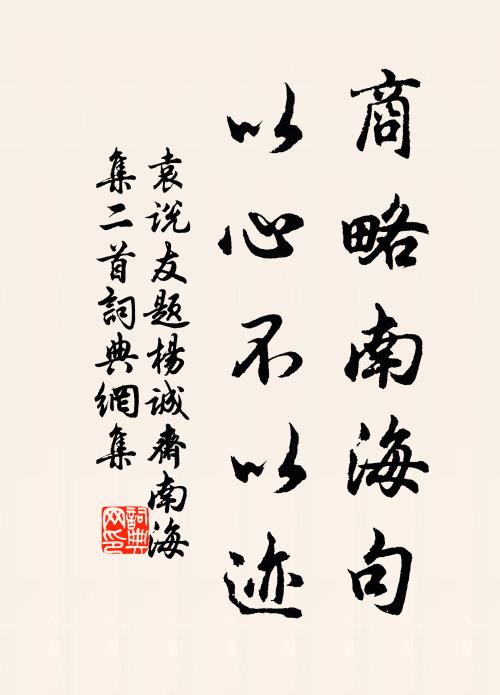 商略南海句
以心不以迹
袁说友题楊诚齋南海
集二首詞典網集
詞典
网印